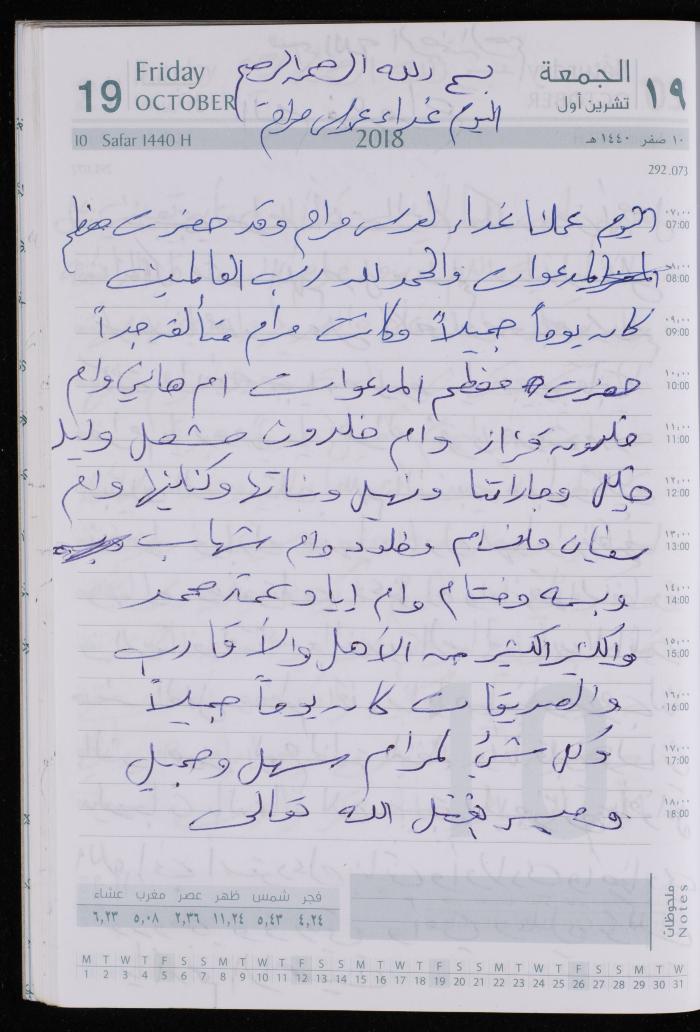 بسم الله الرحمن الرحيم
Friday
19 OCTOBER
الجمعة
١٩ تشرين أول
اليوم غداء عرس مرام
10 Safar 1440 H
2018
١٠ صفر ١٤٤٠ هـ
292.073
اليوم عملنا غداء لعرس مرام وقد حضرت معظم
المدعوات والحمد لله رب العالمين
كان يوماً جميلاً وكانت مرام متألقه جداً
حضرت معظم المدعوات ام هاني وام
خلدون قزاز وام خلدون مشعل وليد
خليل وجاراتنا ونهيل وبناتها وكناينها وام
سفيان وخلود وام شهاب
وبسمه وختام وام اياد وعمة محمد
والكثير الكثير من الأهل والأقارب
والصديقات كان يوماً جميلاً
وكل شيئ لمرام سهل وجميل
وميسر بفضل الله تعالى
٠٧:٠٠ 07:00
٠٨:٠٠ 08:00
٠٩:٠٠ 09:00
١٠:٠٠ 10:00
١١:٠٠ 11:00
١٢:٠٠ 12:00
١٣:٠٠ 13:00
١٤:٠٠ 14:00
١٥:٠٠ 15:00
١٦:٠٠ 16:00
١٧:٠٠ 17:00
١٨:٠٠ 18:00
ملحوظات
Notes
فجر شمس ظهر عصر مغرب عشاء
٤,٢٤ ٥,٤٣ ١١,٢٤ ٢,٣٦ ٥,٠٨ ٦,٢٣
M T W T F S S M T W T F S S M T W T F S S M T W T F S S M T W
1 2 3 4 5 6 7 8 9 10 11 12 13 14 15 16 17 18 19 20 21 22 23 24 25 26 27 28 29 30 31
10